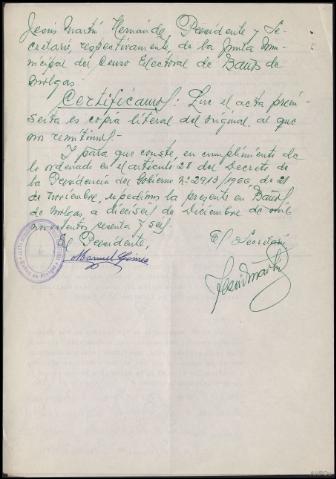 Jesús Martín Hernández Presidente y Se-
cretario, respectivamente, de la Junta Mu-
nicipal del Censo Electoral de Baños de
Molgas.
Certificamos: Que el acta
es copia literal del original al que
nos remitimos.
Y para que conste, en cumplimiento de
lo ordenado en el artículo 28 del Decreto de
la Presidencia del Gobierno nº 2913/1966, de 21
de noviembre, expedimos la presente en Baños
de Molgas, a dieciséis de diciembre de mil
novecientos sesenta y seis
El Presidente, El Secretario
Manuel Gómez
Jesús Martín